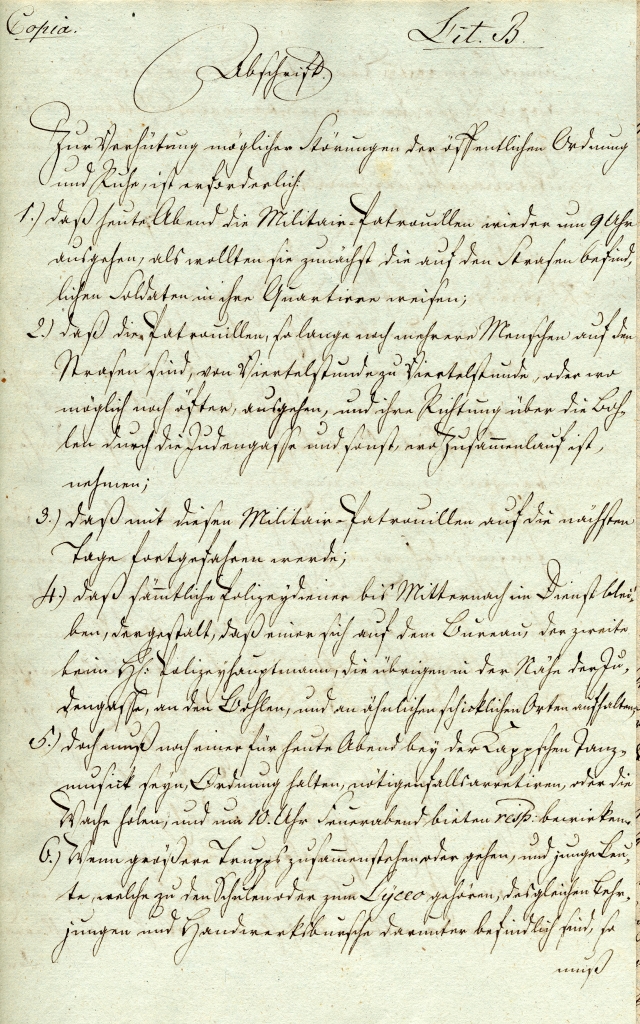 Copia.
Lit. B.
Abschrift
Zur Verhütung möglicher Störungen der öffentlichen Ordnung
und Ruhe, ist erforderlich
1.) daß heute Abend die Militair-Patrouillen wieder um 9 Uhr
ausgehen, als wollten sie zunächst die auf den Strasen befind,
lichen Soldaten in ihre Quartiere weisen;
2.) daß die Patrouillen, so lange noch mehrere Menschen auf den
Strasen sind, von Viertelstunde zu Viertelstunde, oder wo
möglich noch öfter, ausgehen, und ihre Richtung über die Boh-
len durch die Judengasse und sonst, wo Zusammenlauf ist,
nehmen;
3.) daß mit diesen Militair-Patrouillen auf die nächsten
Tage fortgefahren werde;
4.) daß sämtliche Polizeydiener bis Mitternach im Dienst blei-
ben, dergestalt, daß einer sich auf dem Bureau, der zweite
beim H: Polizeyhauptmann, die übrigen in der Nähe der Ju,
dengasse, an den Bohlen, und an ähnlichen schicklichen Orten aufhalten,
5.) doch muß noch einer für heute Abend bey der Kappschen Tanz-
musick seyn, Ordnung halten, nötigenfalls arretiren, oder die
Wache holen, und um 10. Uhr Feuerabend bieten resp: bewirken.
6.) Wenn größere Trupps zusammenstehen oder gehen, und junge Leu,
te, welche zu den Schulen oder zum Lyceo gehören, desgleichen Lehr-
jungen und Handwerksbursche darunter befindlich sind, so
muß